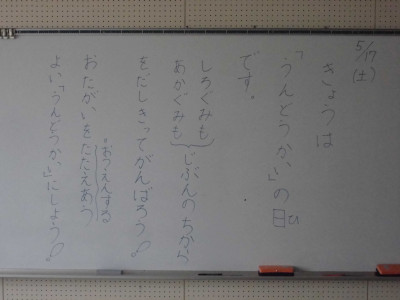 5/17(土)
きょうは
「うんどうかい」の日
ひ
です。
しろぐみも
あかぐみも
じぶんのちから
をだしきってがんばろう
おたがいをたたえあう
・おうえんする
よい「うんどうかい」にしよう